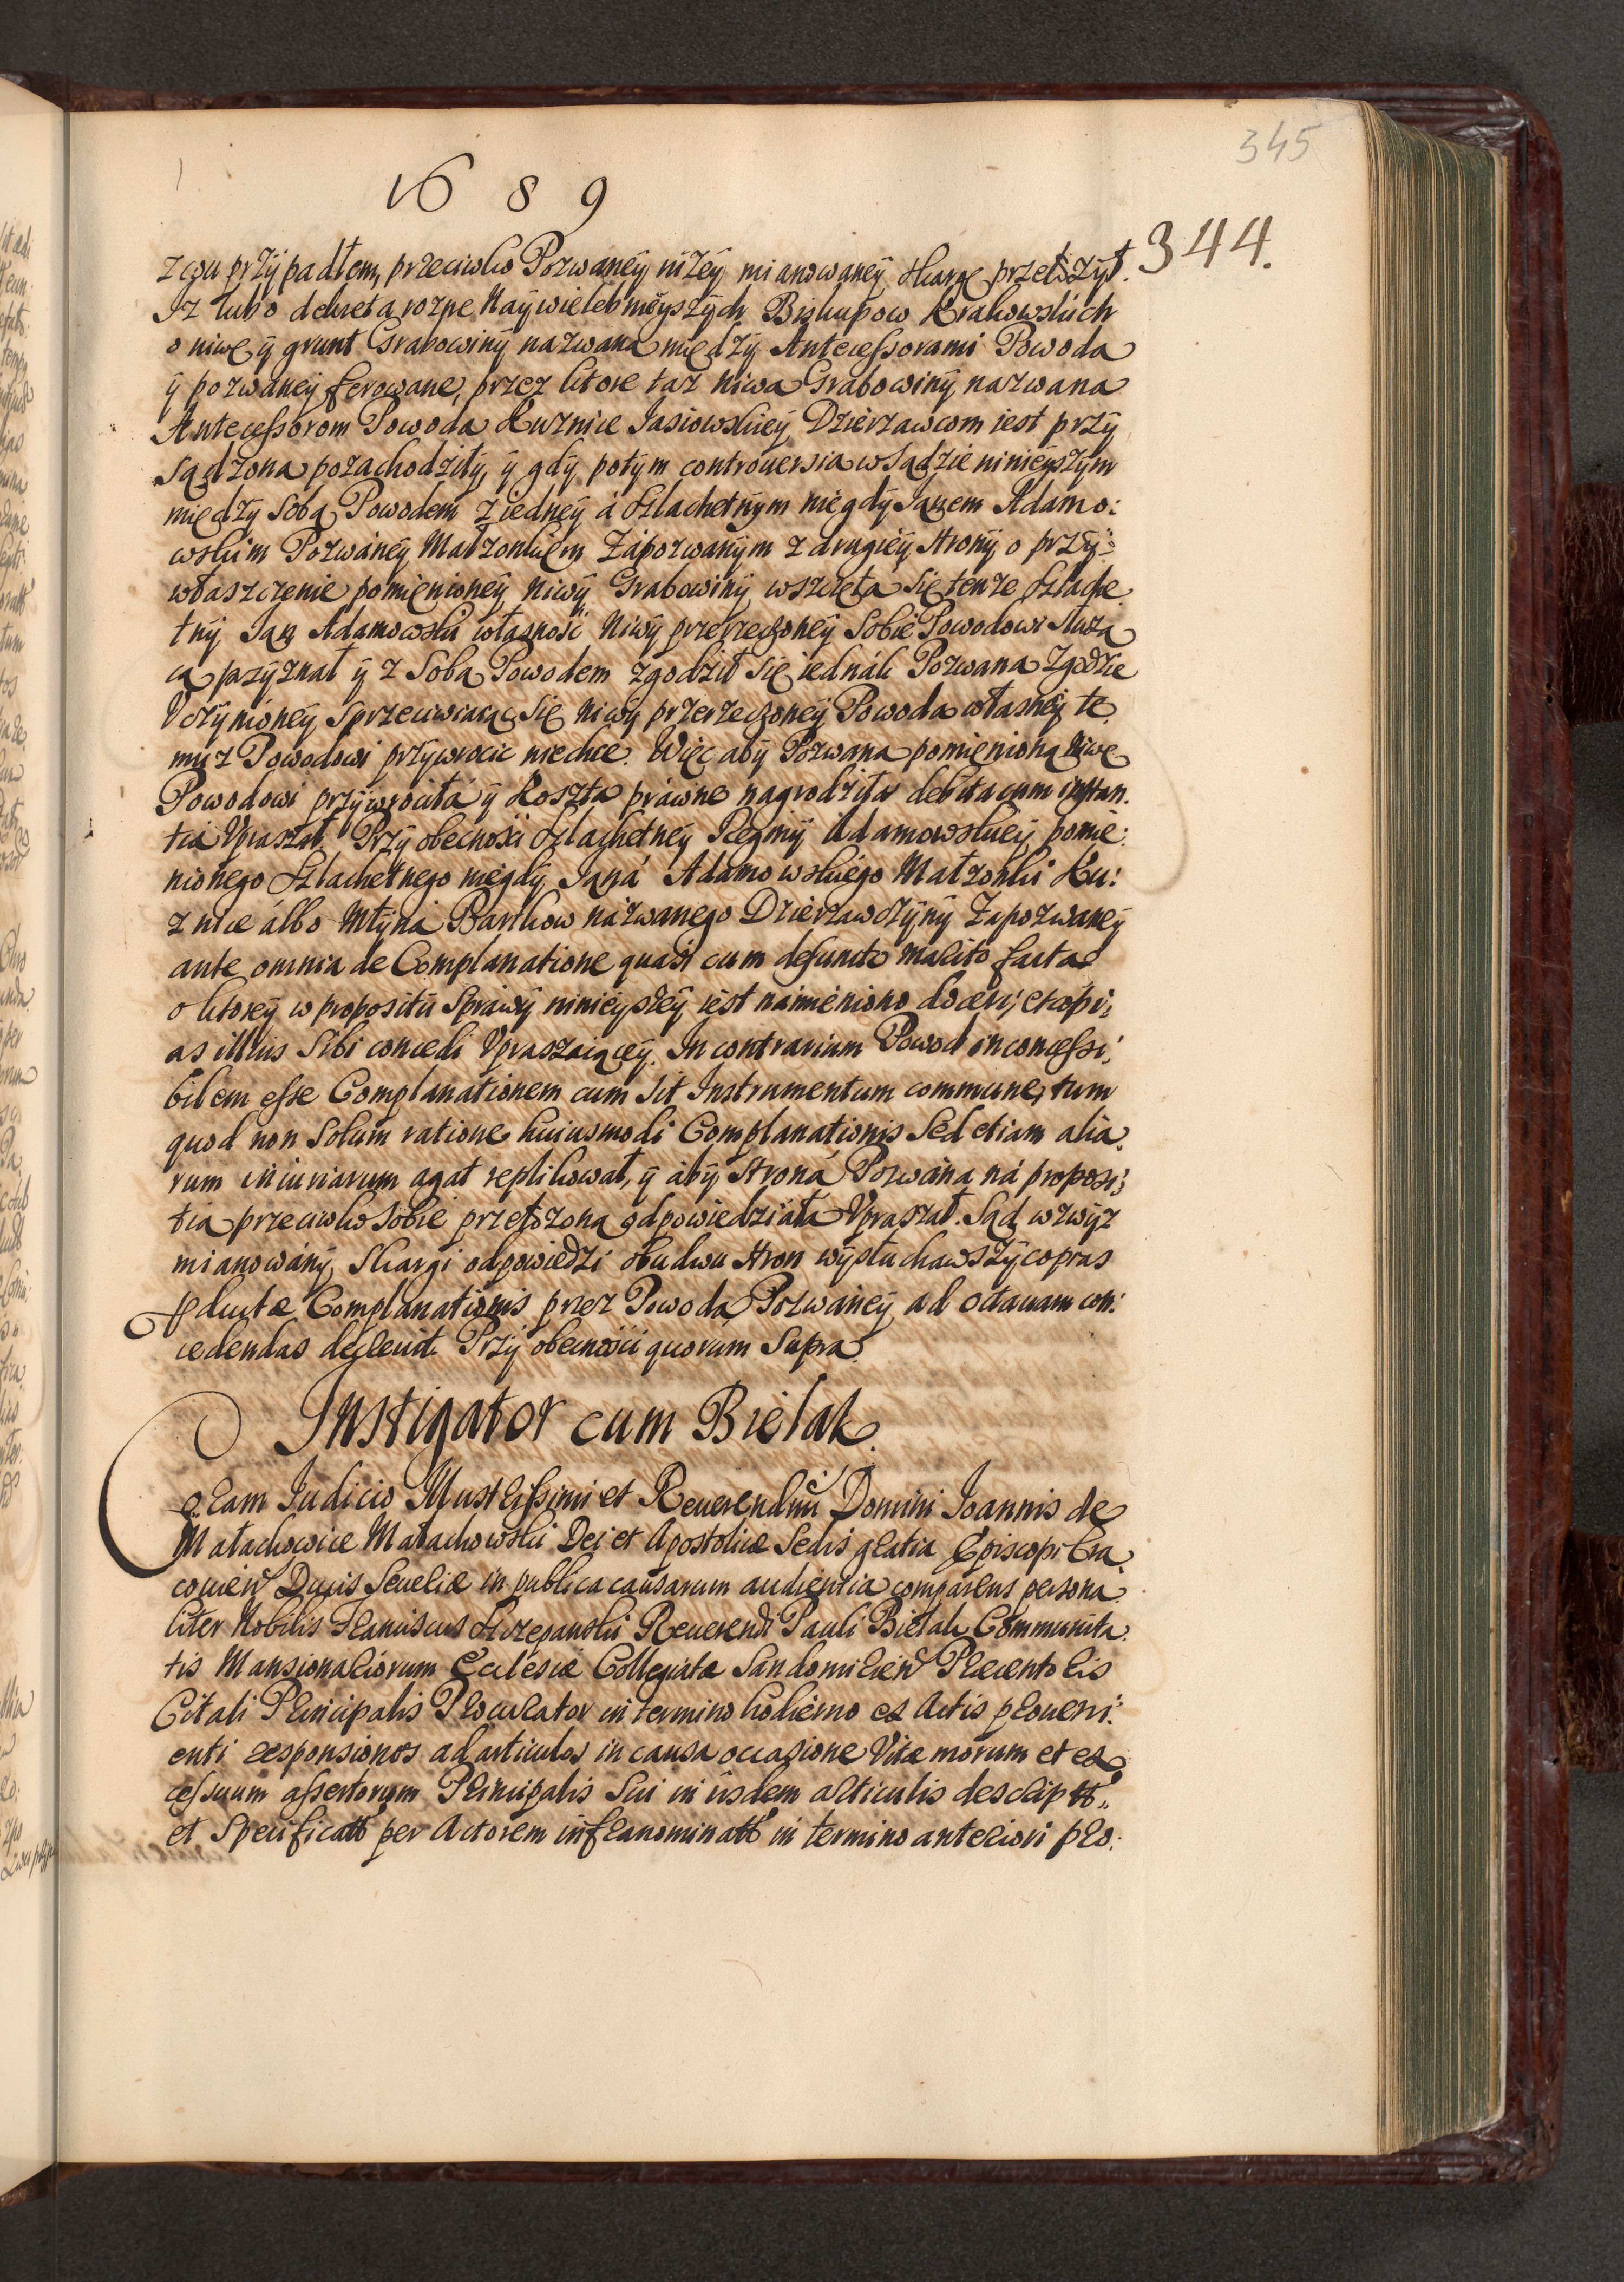 345
1689
344.
zwu przÿpadłem, przeciwko Pozwaneÿ niżeÿ mianowaneÿ skargę przełożÿł.
Jż lubo dekreta rożne Naÿwielebnieÿszÿch Biskupow Krakowskich
o niwę ÿ grunt Grabowinÿ nazwaną międzÿ Antecessorami Powoda
ÿ pozwaneÿ ferowane, przez ktore taż niwa Grabowinÿ nazwana
Antecessorom Powoda Kuznice Jasiowskieÿ Dzierzawcom iest przÿ
sądzona pozachodziłÿ, ÿ gdÿ potÿm controuersia w Sądzie ninieÿszÿm
międzÿ Sobą Powodem z iedneÿ á Szlachetnym niegdÿ Janem Adamo:
wskim Pozwáneÿ Małzonkiem Zápozwanÿm z drugieÿ stronÿ o przÿ:
właszczenie pomienioneÿ Niwÿ Grabowinÿ wszczęła się tenże Szlache
tnÿ Jan Adamowski własność Niwÿ przerzeczoneÿ Sobie Powodowi służą
cą przÿznał ÿ z Sobą Powodem zgodził się iednák Pozwana Zgodzie
Vczÿnioneÿ sprzeciwiaiąc się Niwÿ przerzeczoneÿ Powoda własneÿ te
muż Powodowi przÿwrocic niechce. Więc abÿ Pozwana pomienioną Niwę
Powodowi przÿwrociłá ÿ koszta práwne nagrodziła debita cum instan
tia Vpraszał. Przÿ obecnośći Szlachetneÿ Reginÿ Adamowskieÿ pomie:
nionego Szlachetnego niegdÿ Janá Adamowskiego Małzonki Ku:
znice álbo Młÿná Barkow názwanego Dzierzawczÿnÿ Zapozwaneÿ
ante omnia de Complanatione quasi cum defuncto Marito facta
o ktoreÿ w propositii Sprawÿ ninieÿszeÿ iest námieniono doceri, et copi:
as illius Sibi concedi Vpraszaiąceÿ. In contrarium Powod inconcessi:
bilem esse Complanationem cum sit Instrumentum commune, tum
quod non solum ratione huiusmodi Complanationis Sed etiam alia
rum iniuriarum agat replikował, ÿ ábÿ stroná Pozwána ná proposi:
tią przeciwko sobie przełożoną odpowiedziáła Vpraszał. Sąd wzwÿż
mianowánÿ, Skargi odpowiedzi obudwu stron wÿsłuchawszÿ copias
pductæ Complanationis przez Powoda Pozwaneÿ ad octauam con:
cedendas decreuit. Przÿ obecnośći quorum Supra.
Instigator cum Bielak.
Coram Judicio Illustrissimi et Reuerendmi Domini Joannis de
Małachowice Małachowski Dei et Apostolicæ Sedis gratia Episcopi Cra
couien Ducis Seueriæ in publica causarum audientia comparens persona
liter Nobilis Franciscus Szczepanski Reuerendi Pauli Bielak Communita
tis Mansionariorum Ecclesiæ Collegiatæ Sandomirien Præcentoris
Citati Principalis Procurator in termino hodierno ex Actis proueni:
enti responsiones ad articulos in causa occasione Vitæ morum et ex
cessuum assertorum Principalis sui in iisdem articulis descriptt,,
et Specificatt per Actorem infranominatt in termino anteriori pro: